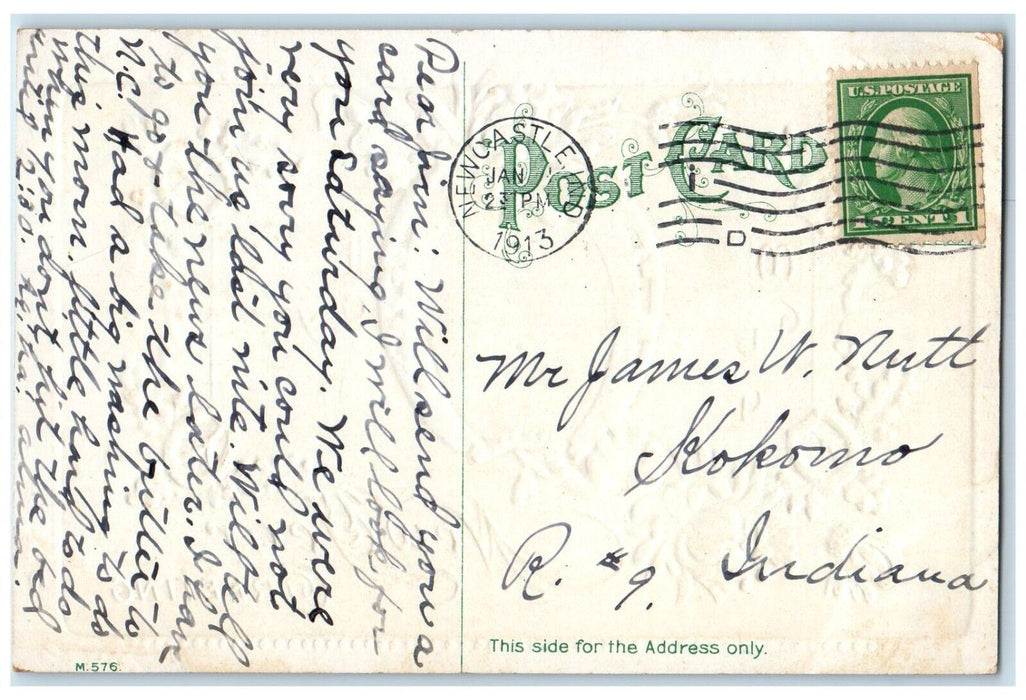 Dear Jim: Will send you a
card saying, I will look for
you Saturday. We were
very sorry you could not
join us last nite. Will tell
you the news later. I have
to go & take the butter to
N.C. Had a big washing to do
this morn. little hard to do
when you don't hit the bed
until 2:30. Ha, ha,
POST CARD
U.S. POSTAGE
1 CENT 1
NEWCASTLE IND
JAN
2 PM
1913
D
Mr James W. Nutt
Kokomo
R. # 9. Indiana
This side for the Address only.
M. 576.